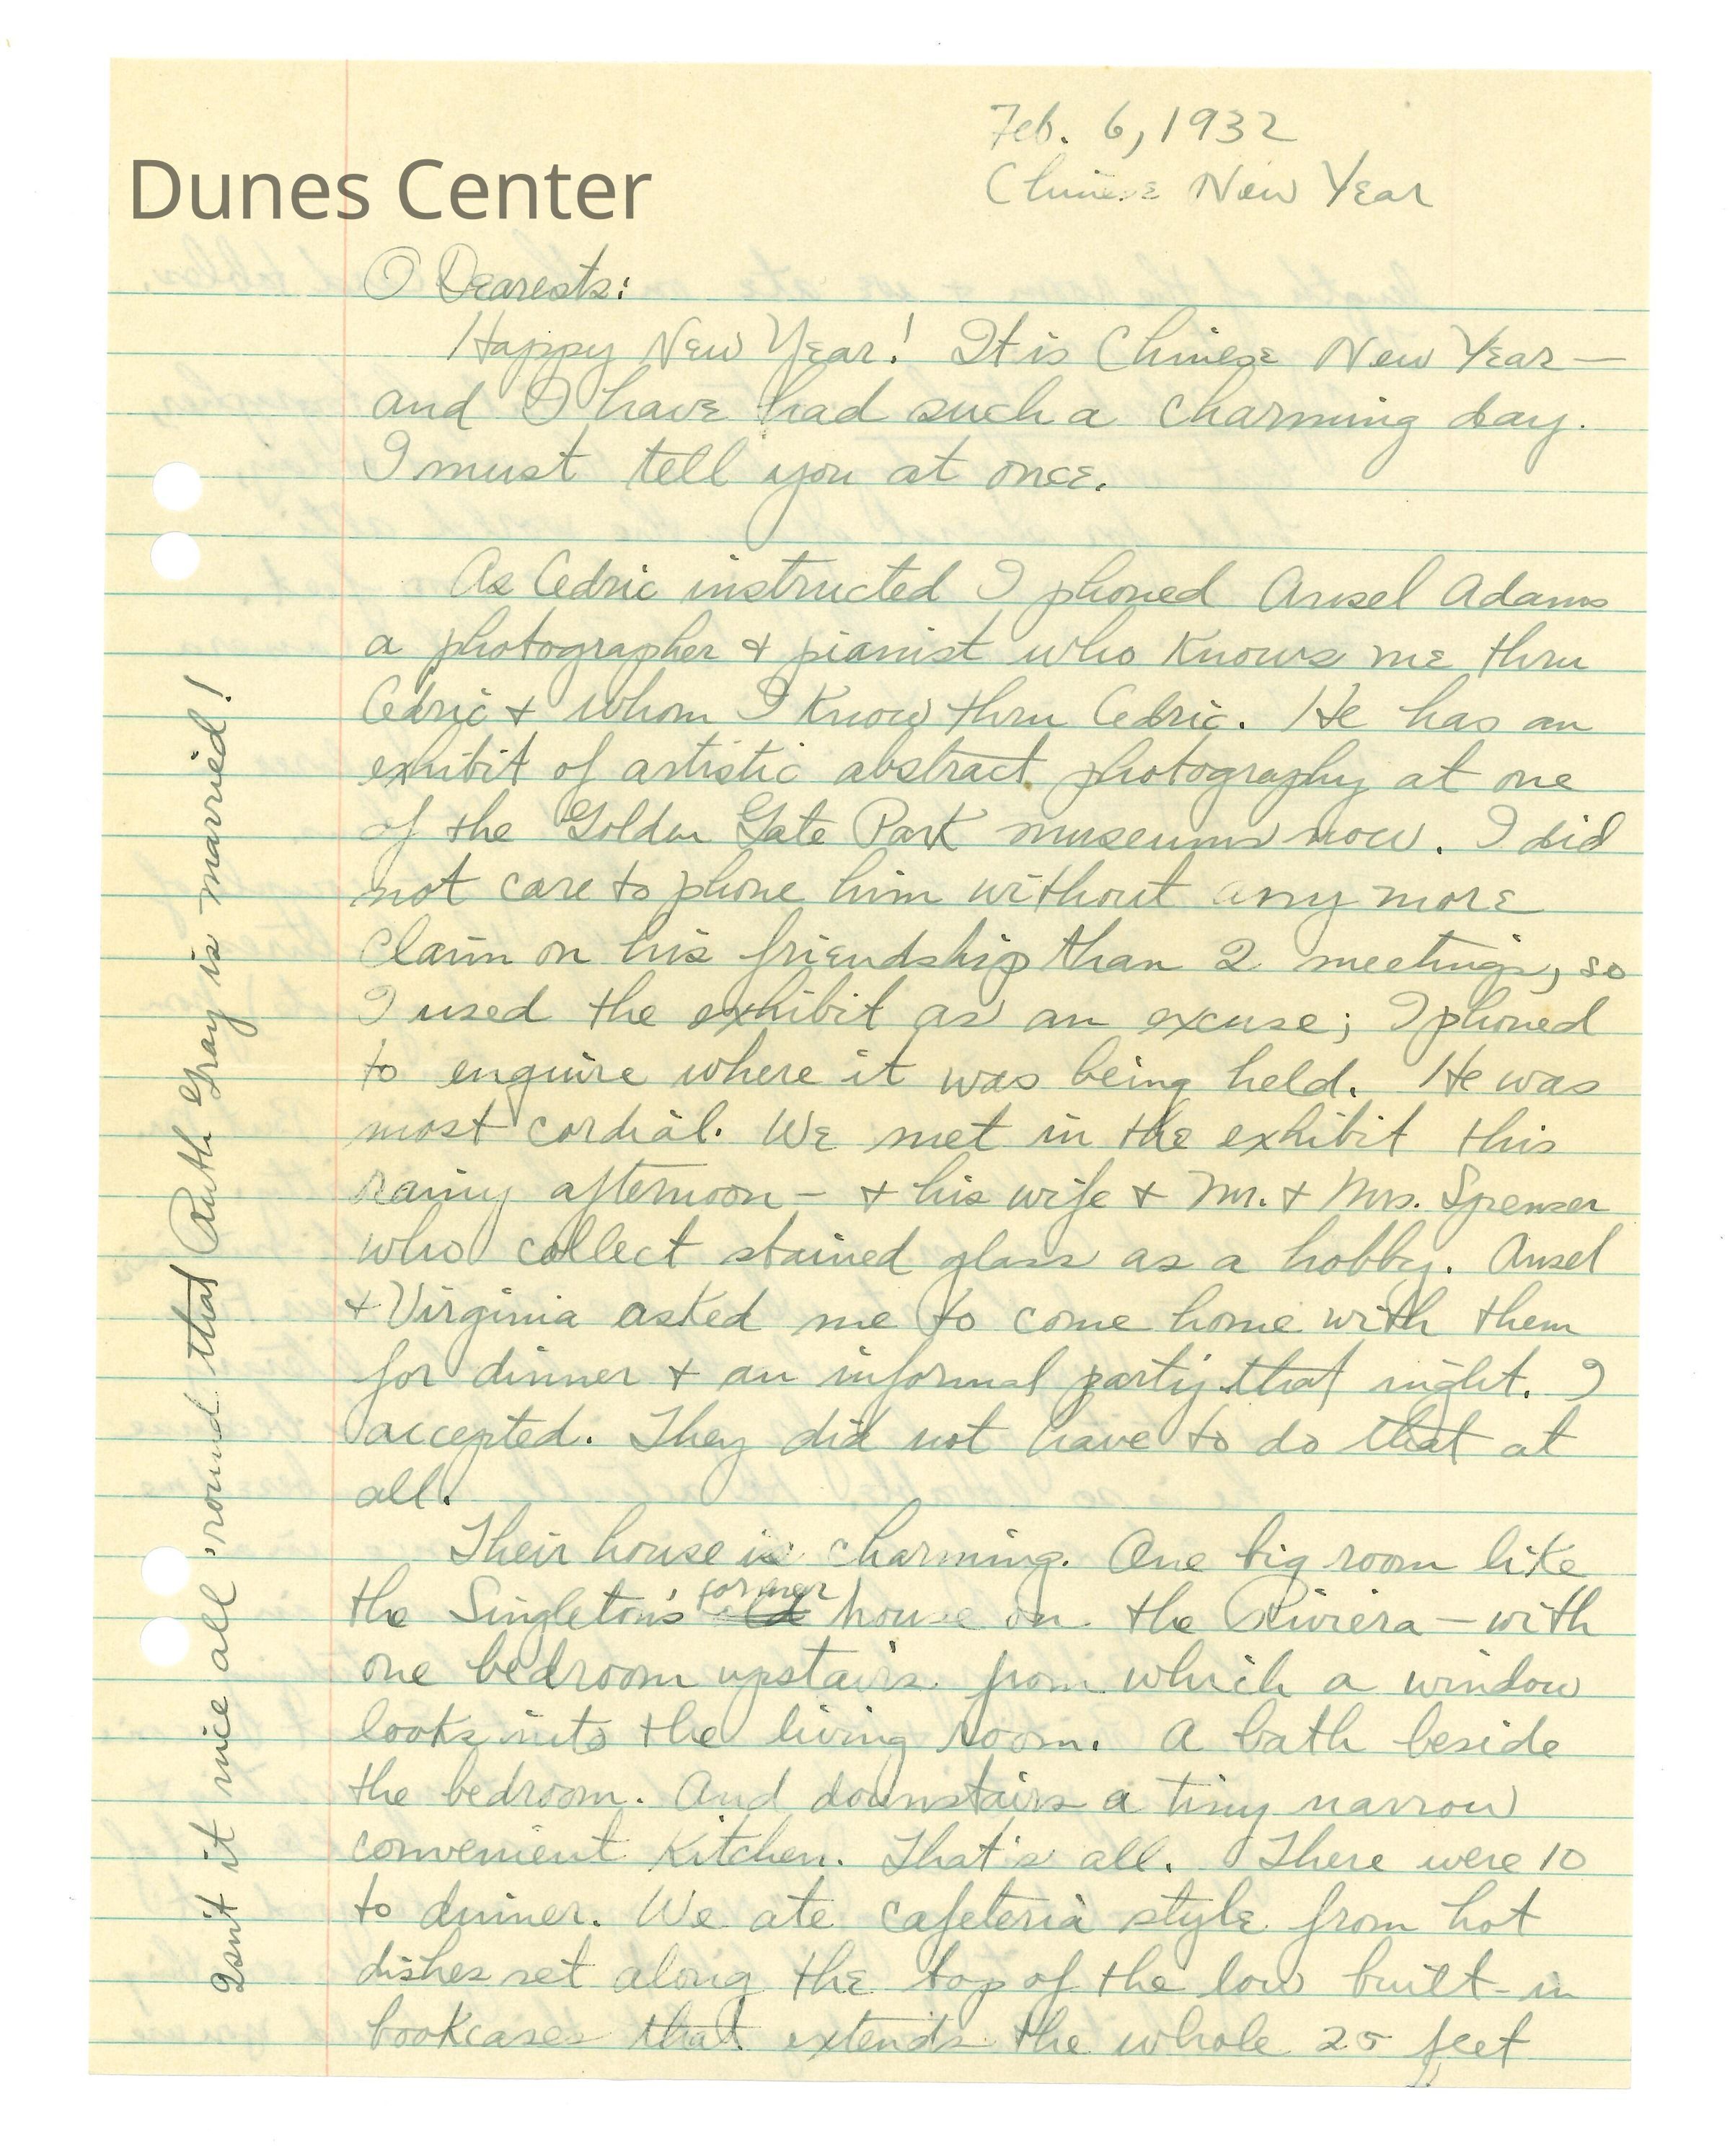 Feb. 6, 1932
Chinese New Year
Dunes Center
O Dearests:
Happy New Year! It is Chinese New Year —
and I have had such a charming day.
I must tell you at once.
As Cedric instructed I phoned Ansel Adams
a photographer + pianist who knows me thru
Cedric + whom I know thru Cedric. He has an
exhibit of artistic abstract photography at one
of the Golden Gate Park museums now. I did
not care to phone him without any more
claim on his friendship than 2 meetings, so
I used the exhibit as an excuse; I phoned
to enquire where it was being held. He was
most cordial. We met in the exhibit this
rainy afternoon - + his wife + Mr. + Mrs. Spenser
who collect stained glass as a hobby. Ansel
+ Virginia asked me to come home with them
for dinner + an informal party that night. I
accepted. They did not have to do that at
all.
Their house is charming. One big room like
the Singleton's former house on the Riviera — with
one bedroom upstairs from which a window
looks into the living room. A bath beside
the bedroom. And downstairs a tiny narrow
convenient kitchen. That's all. There were 10
to dinner. We ate cafeteria style from hot
dishes set along the top of the low built-in
bookcases that extends the whole 25 feet
Isn't it nice all 'round that Ruth Gray is married!